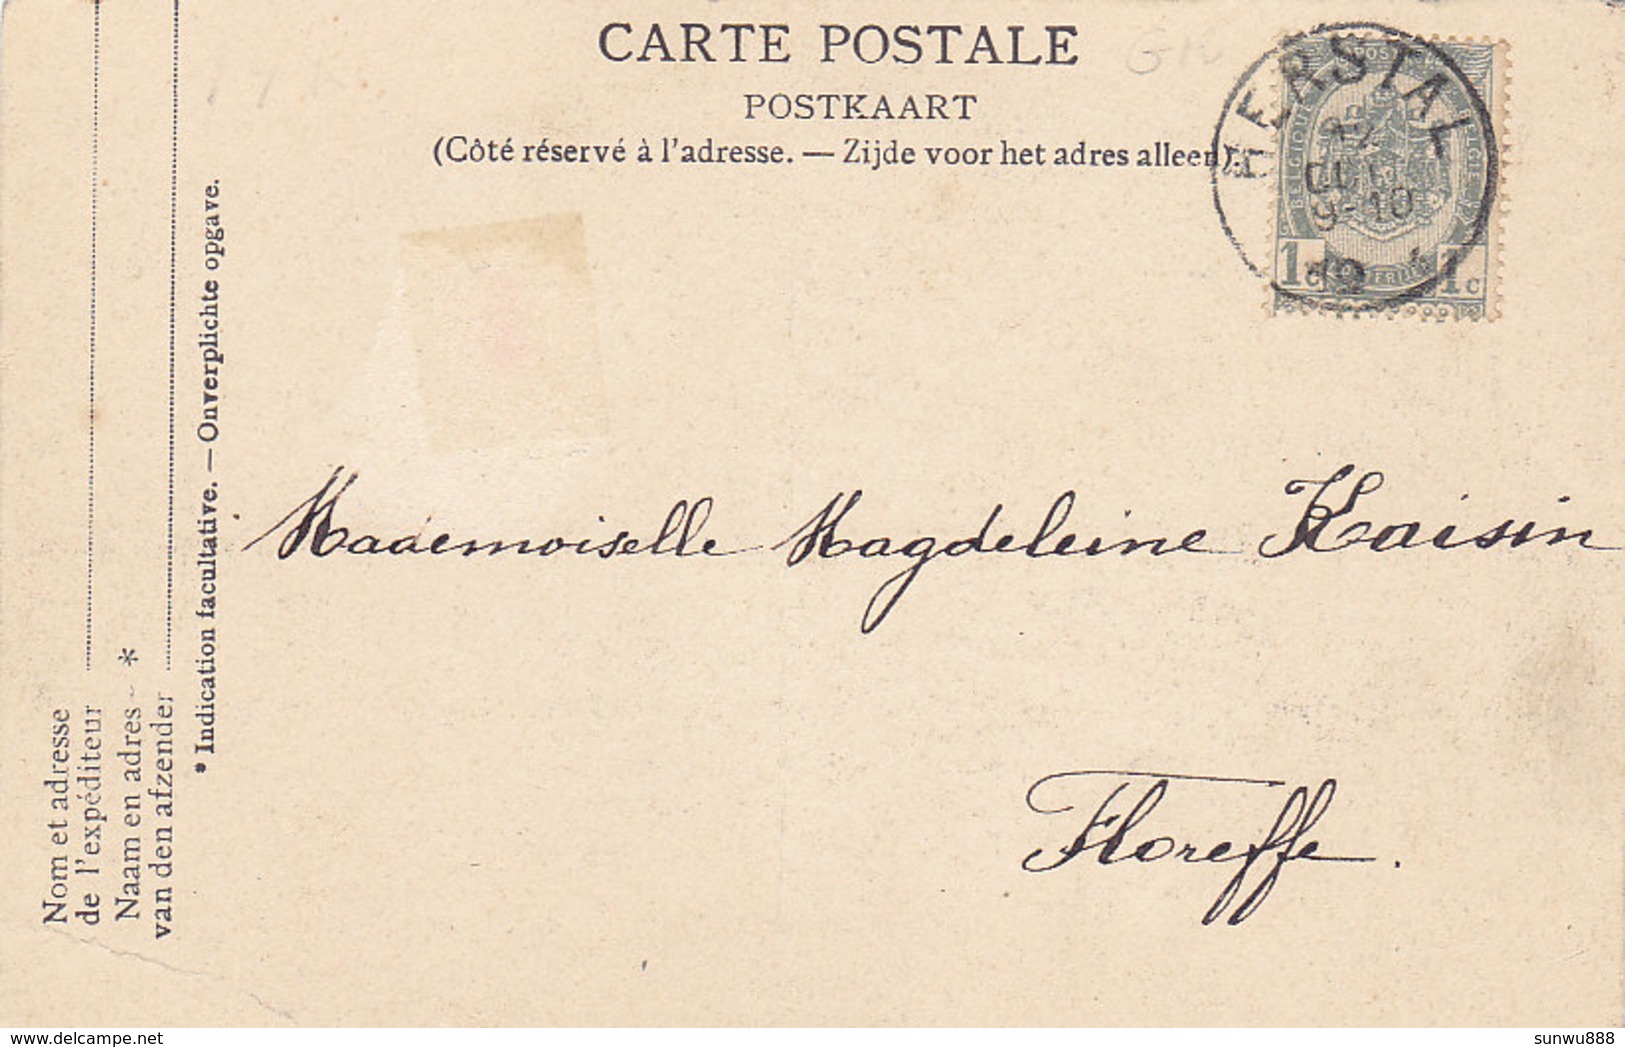 CARTE POSTALE
POSTKAART
(Côté réservé à l'adresse. — Zijde voor het adres alleen).
HERSTAL
9-10
BELGIQUE
1c 1c
Mademoiselle Magdeleine Kaisin
Floreffe.
Nom et adresse
de l'expéditeur
Naam en adres *
van den afzender
* Indication facultative. — Onverplichte opgave.
delcampe.net
sunwu888